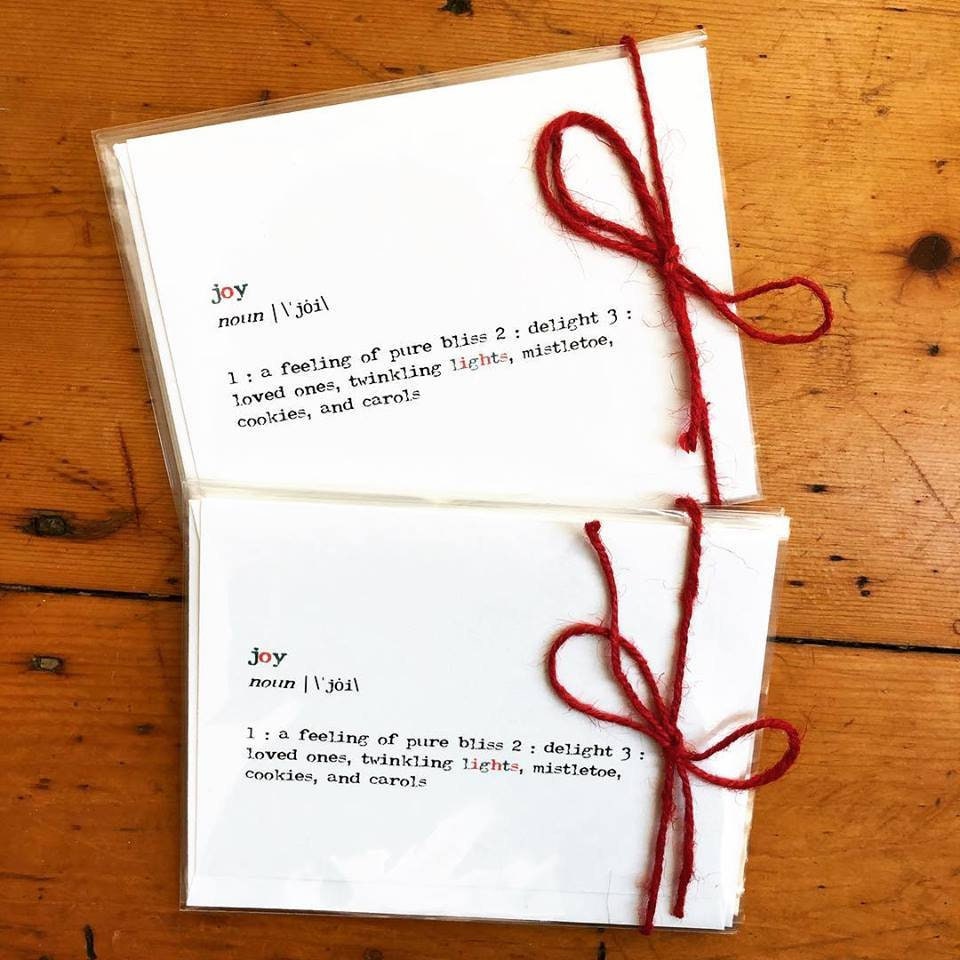 joy
noun | \ˈjȯi\
1 : a feeling of pure bliss 2 : delight 3 :
loved ones, twinkling lights, mistletoe,
cookies, and carols
joy
noun | \ˈjȯi\
1 : a feeling of pure bliss 2 : delight 3 :
loved ones, twinkling lights, mistletoe,
cookies, and carols